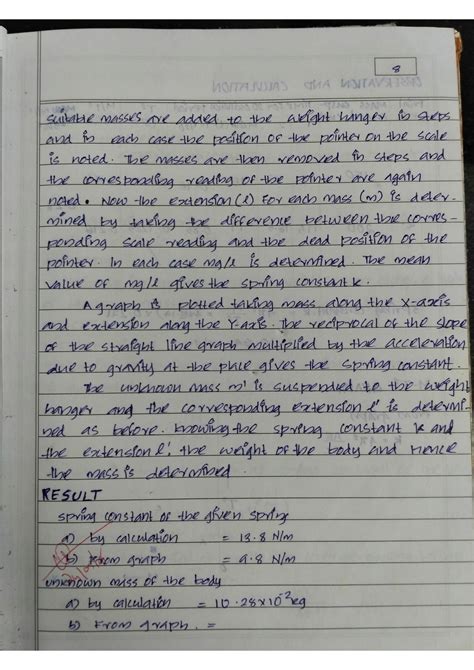 8
OBSERVATION AND CALCULATION
suitable masses are added to the weight hanger in steps
and in each case the position of the pointer on the scale
is noted. The masses are then removed in steps and
the corresponding reading of the pointer are again
noted. Now the extension (l) For each mass (m) is deter-
mined by taking the difference between the corres-
ponding scale reading and the dead position of the
pointer. In each case mg/l is determined. The mean
value of mg/l gives the spring constant k.
A graph is plotted taking mass along the X-axis
and extension along the Y-axis. The reciprocal of the slope
of the straight line graph multiplied by the acceleration
due to gravity at the place gives the spring constant.
The unknown mass m' is suspended to the weight
hanger and the corresponding extension l' is determi-
ned as before. Knowing the spring constant k and
the extension l', the weight of the body and Hence
the mass is determined.
RESULT
spring constant of the given spring
a) by calculation = 13.8 N/m
b) From graph = 9.8 N/m
unknown mass of the body
a) by calculation = 10.28x10-2kg
b) From graph. =